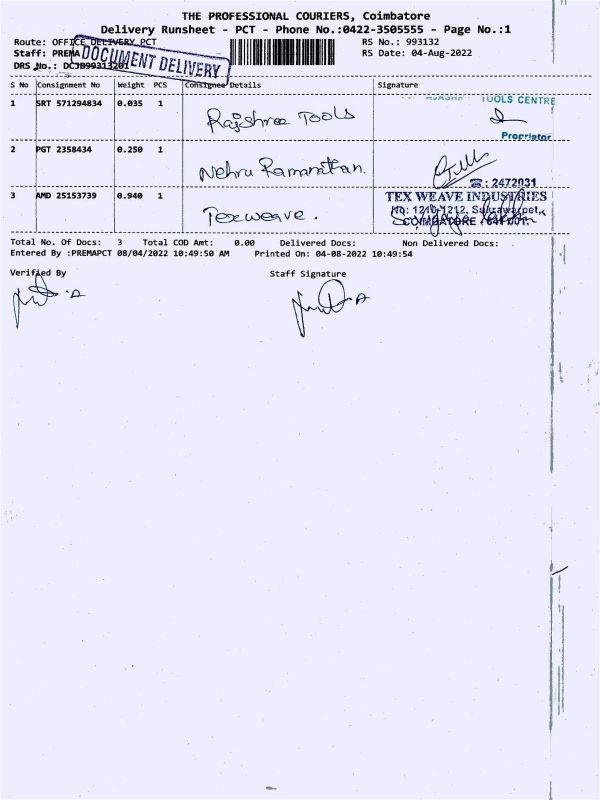 THE PROFESSIONAL COURIERS, Coimbatore
Delivery Runsheet - PCT - Phone No.:0422-3505555 - Page No.:1
Route: OFFICE DELIVERY PCT
RS No.: 993132
Staff: PREMA
RS Date: 04-Aug-2022
DOCUMENT DELIVERY
DRS No.: DCJB99313201
S No Consignment No Weight PCS Consignee Details Signature
1 SRT 571294834 0.035 1 Rajshree Tools
TOOLS CENTRE
Proprietor
2 PGT 2358434 0.250 1 Nehru Ramanathan.
☎: 2472031
3 AMD 25153739 0.940 1 Texweave.
TEX WEAVE INDUSTRIES
No: 1210-1212,
COIMBATORE - 641 001.
Total No. Of Docs: 3 Total COD Amt: 0.00 Delivered Docs: Non Delivered Docs:
Entered By :PREMAPCT 08/04/2022 10:49:50 AM Printed On: 04-08-2022 10:49:54
Verified By Staff Signature